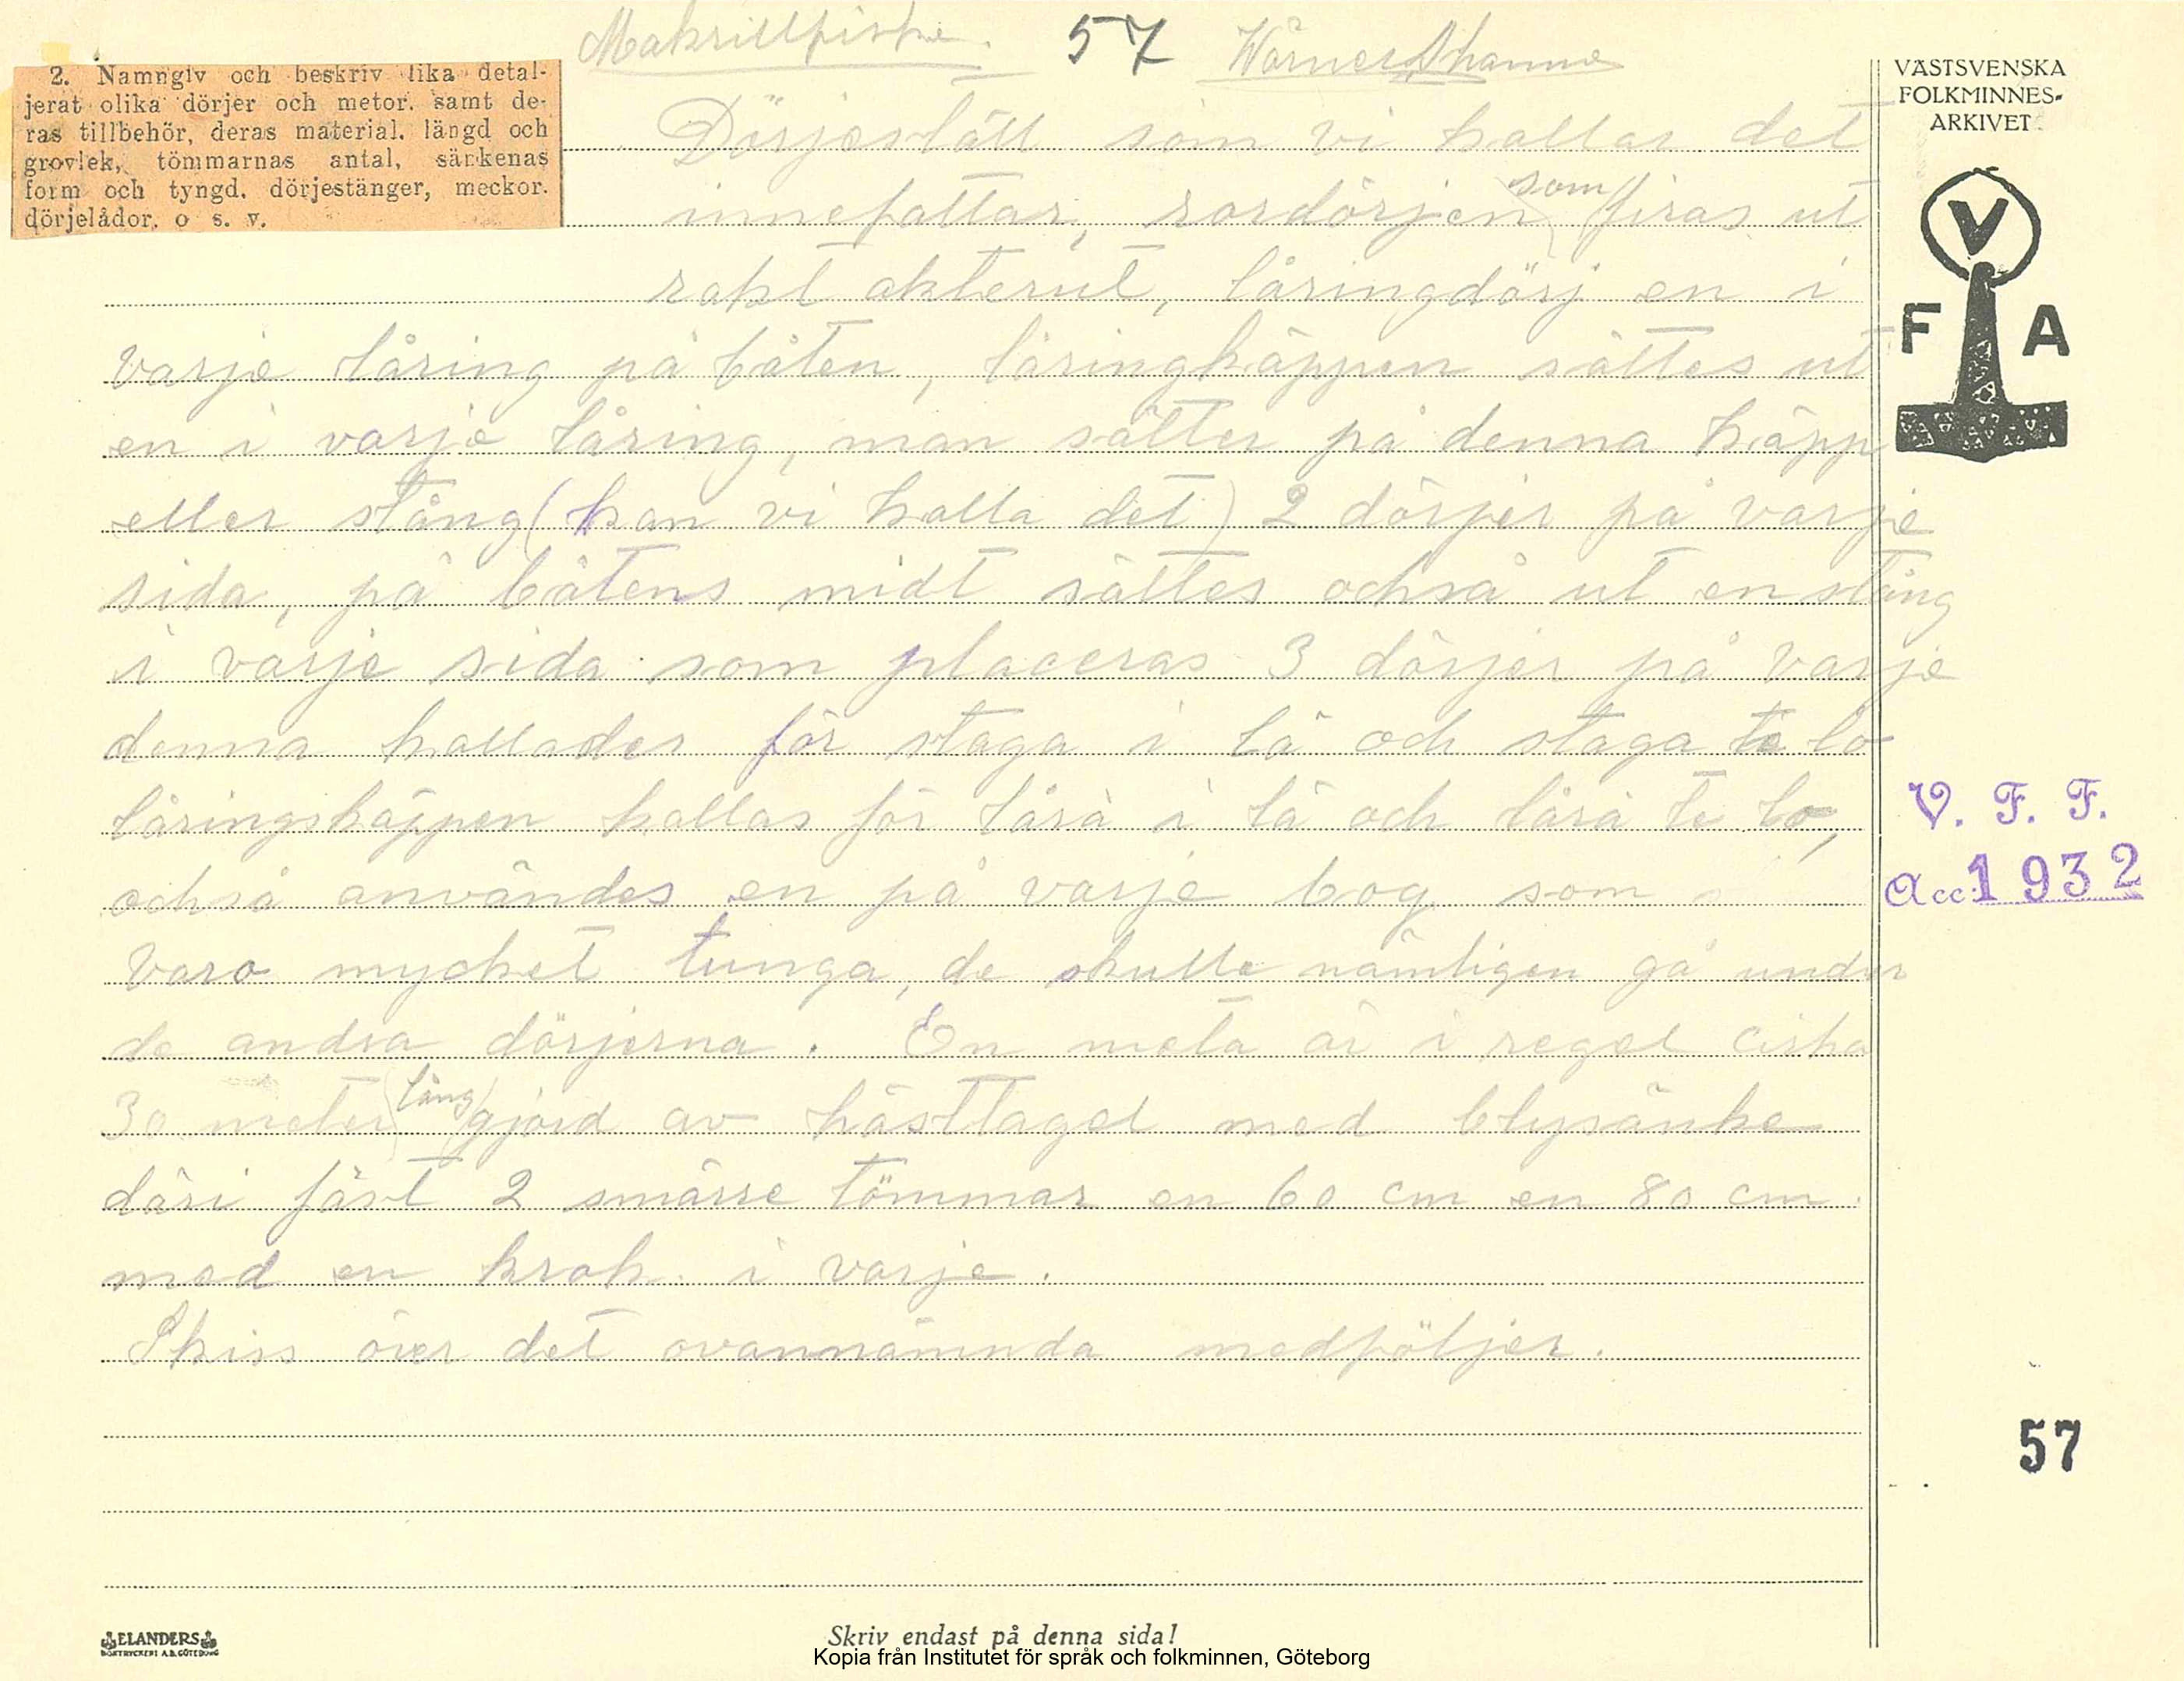 Makrillfiske. 57 Wärner Shanne
2. Namngiv och beskriv lika detal-
jerat olika dörjer och metor. samt de-
ras tillbehör, deras material. längd och
grovlek, tömmarnas antal, sänkenas
form och tyngd. dörjestänger, meckor.
dörjelådor. o s. v.
Dörjeställ som vi kallar det
innefattar, rordörjen som firas ut
rakt akterut, låringdörj en i
varje låring på båten, låringkäppen sättes ut
en i varje låring, man sätter på denna käpp
eller stång (kan vi kalla det) 2 dörjer på varje
sida, på båtens midt sättes också ut en stång
i varje sida som placeras 3 dörjer på varje
denna kallades för staga i lä och staga te lo
låringskäppen kallas för låra i lä och låra te lo,
också användes en på varje bog som
varo mycket tunga, de skulle nämligen gå under
de andra dörjerna. En meta är i regel cirka
30 meter lång gjord av hästtagel med blysänke
däri fäst 2 smärre tömmar en 60 cm en 80 cm.
med en krok i varje.
Skiss över det ovannämnda medföljer.
VÄSTSVENSKA
FOLKMINNES-
ARKIVET
V
F A
V. F. F.
Acc. 1932
57
ELANDERS
BOKTRYCKERI A.B. GÖTEBORG
Skriv endast på denna sida!
Kopia från Institutet för språk och folkminnen, Göteborg